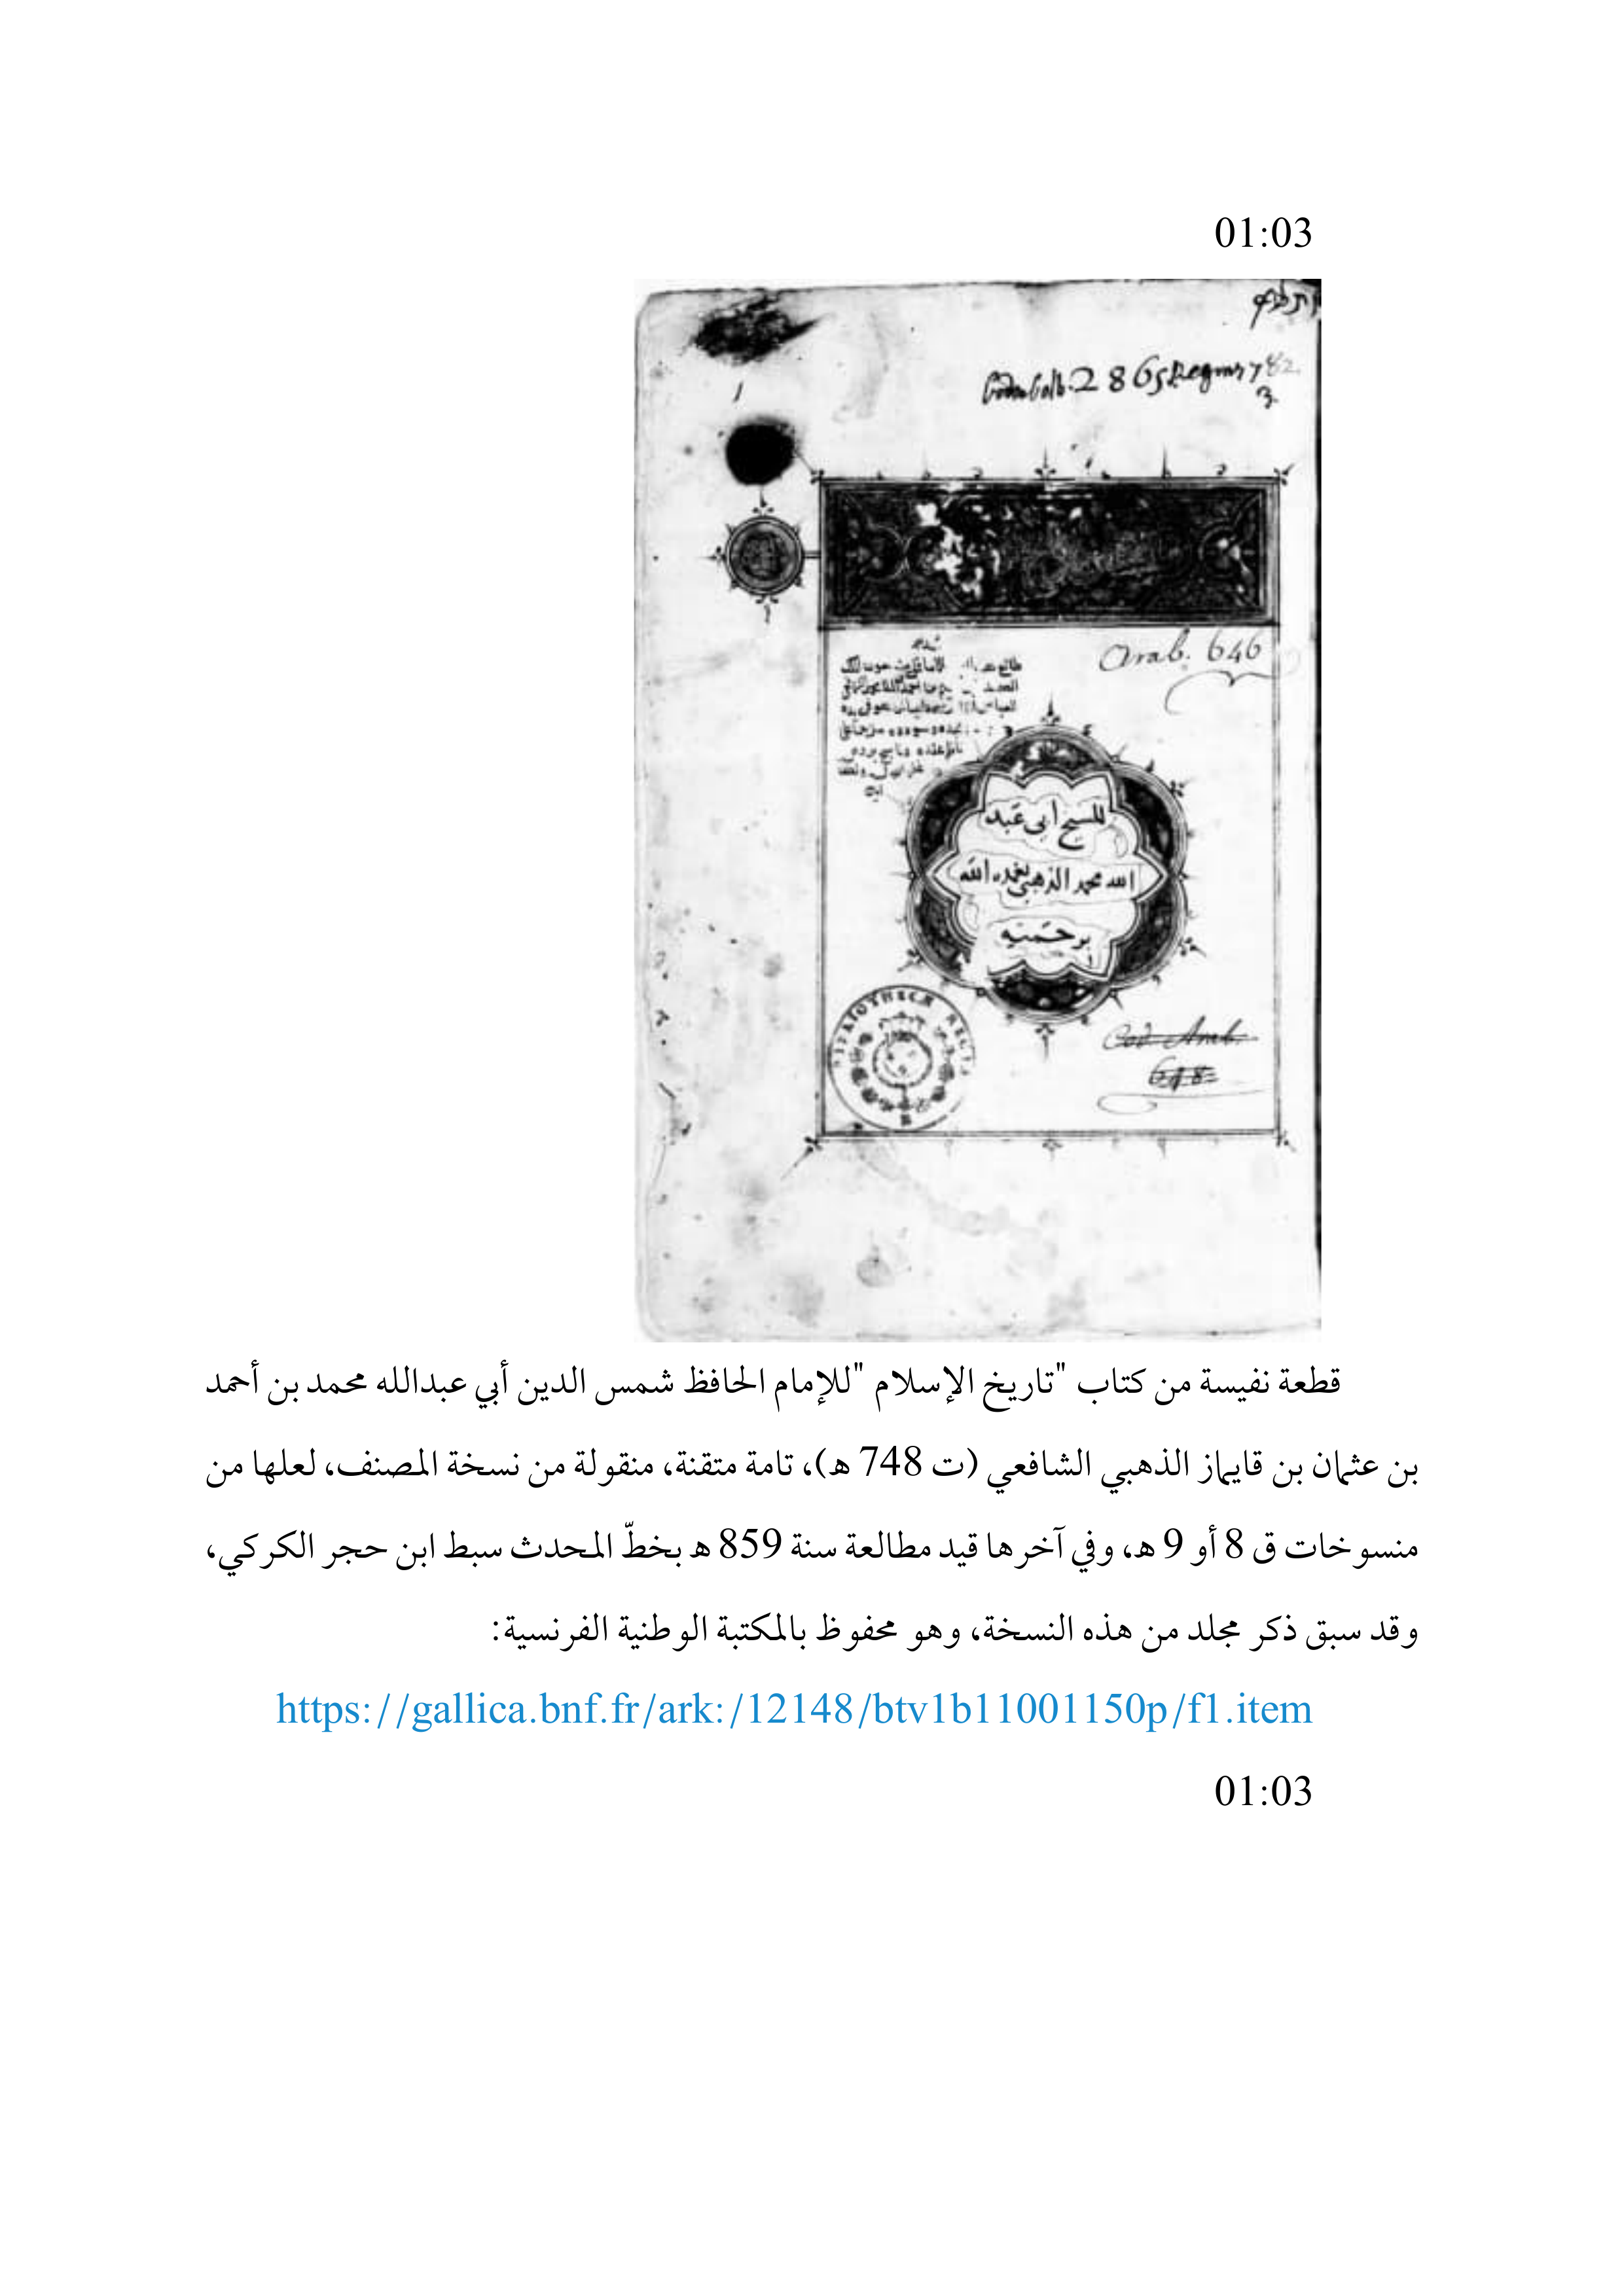 01:03
2865 Regius 782.
3
1
Arab. 646
للشيخ أبي عبد
الله محمد الذهبي تغمده الله
برحمته
BIBLIOTHECA REGIA
Cod. Arab.
618
قطعة نفيسة من كتاب "تاريخ الإسلام "للإمام الحافظ شمس الدين أبي عبدالله محمد بن أحمد
بن عثمان بن قايماز الذهبي الشافعي (ت 748 هـ)، تامة متقنة، منقولة من نسخة المصنف، لعلها من
منسوخات ق 8 أو 9 هـ، وفي آخرها قيد مطالعة سنة 859 هـ بخطّ المحدث سبط ابن حجر الكركي،
وقد سبق ذكر مجلد من هذه النسخة، وهو محفوظ بالمكتبة الوطنية الفرنسية:
https://gallica.bnf.fr/ark:/12148/btv1b11001150p/f1.item
01:03